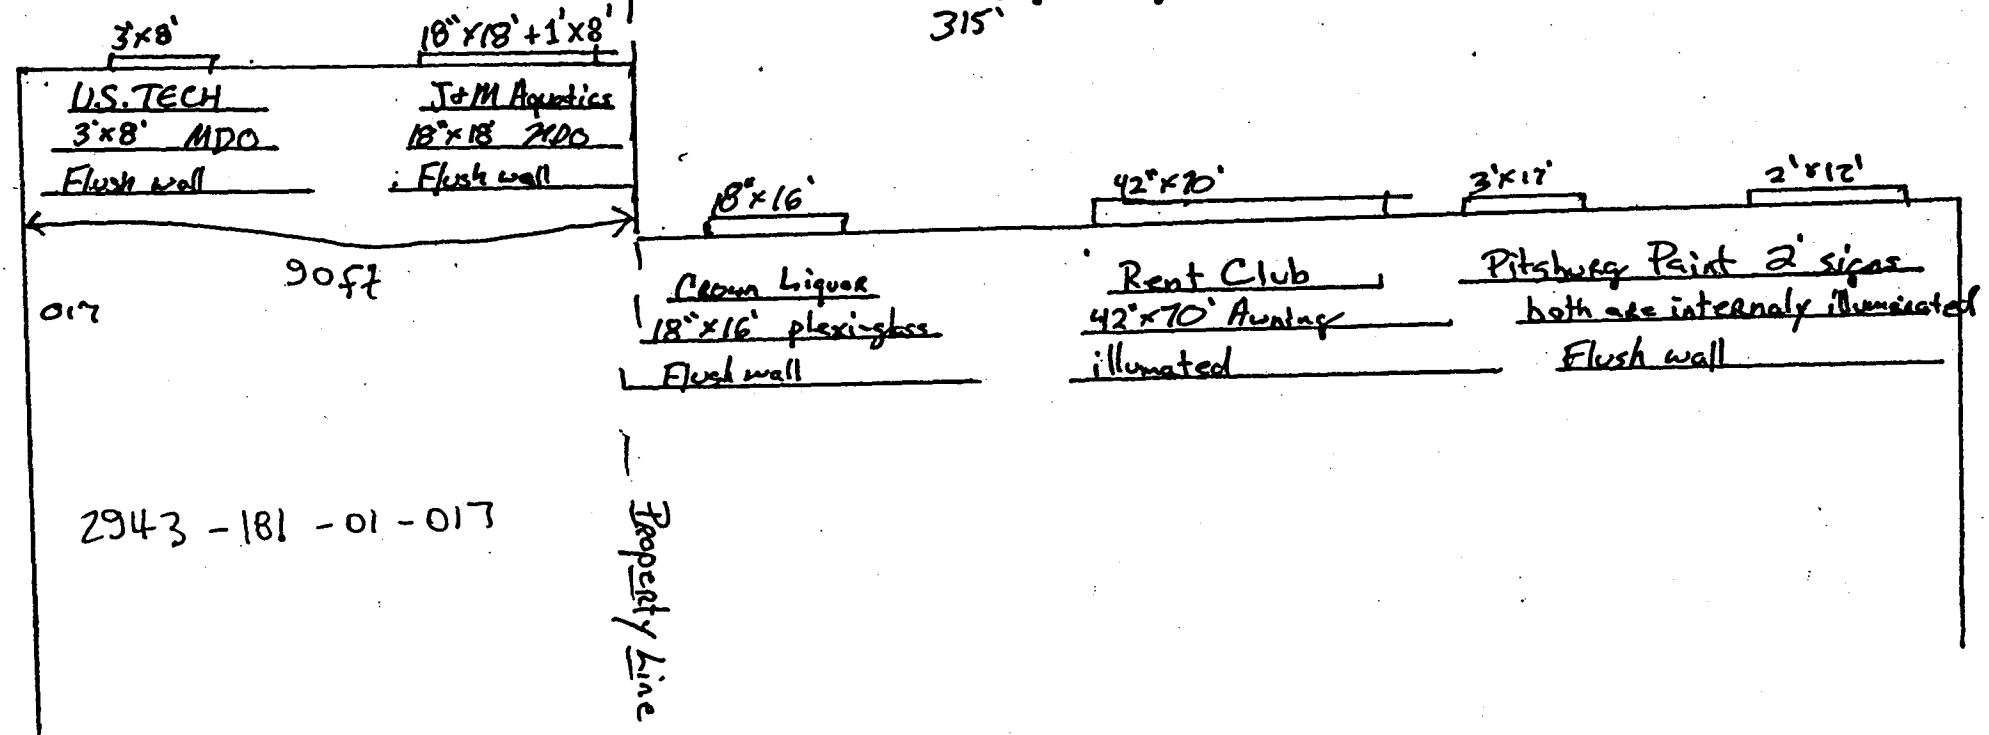 315'
3'×8'
18"×18'+1'×8'
U.S. TECH
3'×8' MDO
Flush wall
J+M Aquatics
18"×18' MDO
Flush wall
90ft
017
2943-181-01-017
Property Line
18"×16'
Crown Liquor
18"×16' plexi-glass
Flush wall
42"×70'
Rent Club
42"×70' Awning
illumated
3'×12'
2'×12'
Pitsburg Paint 2' signs
both are internaly illuminated
Flush wall